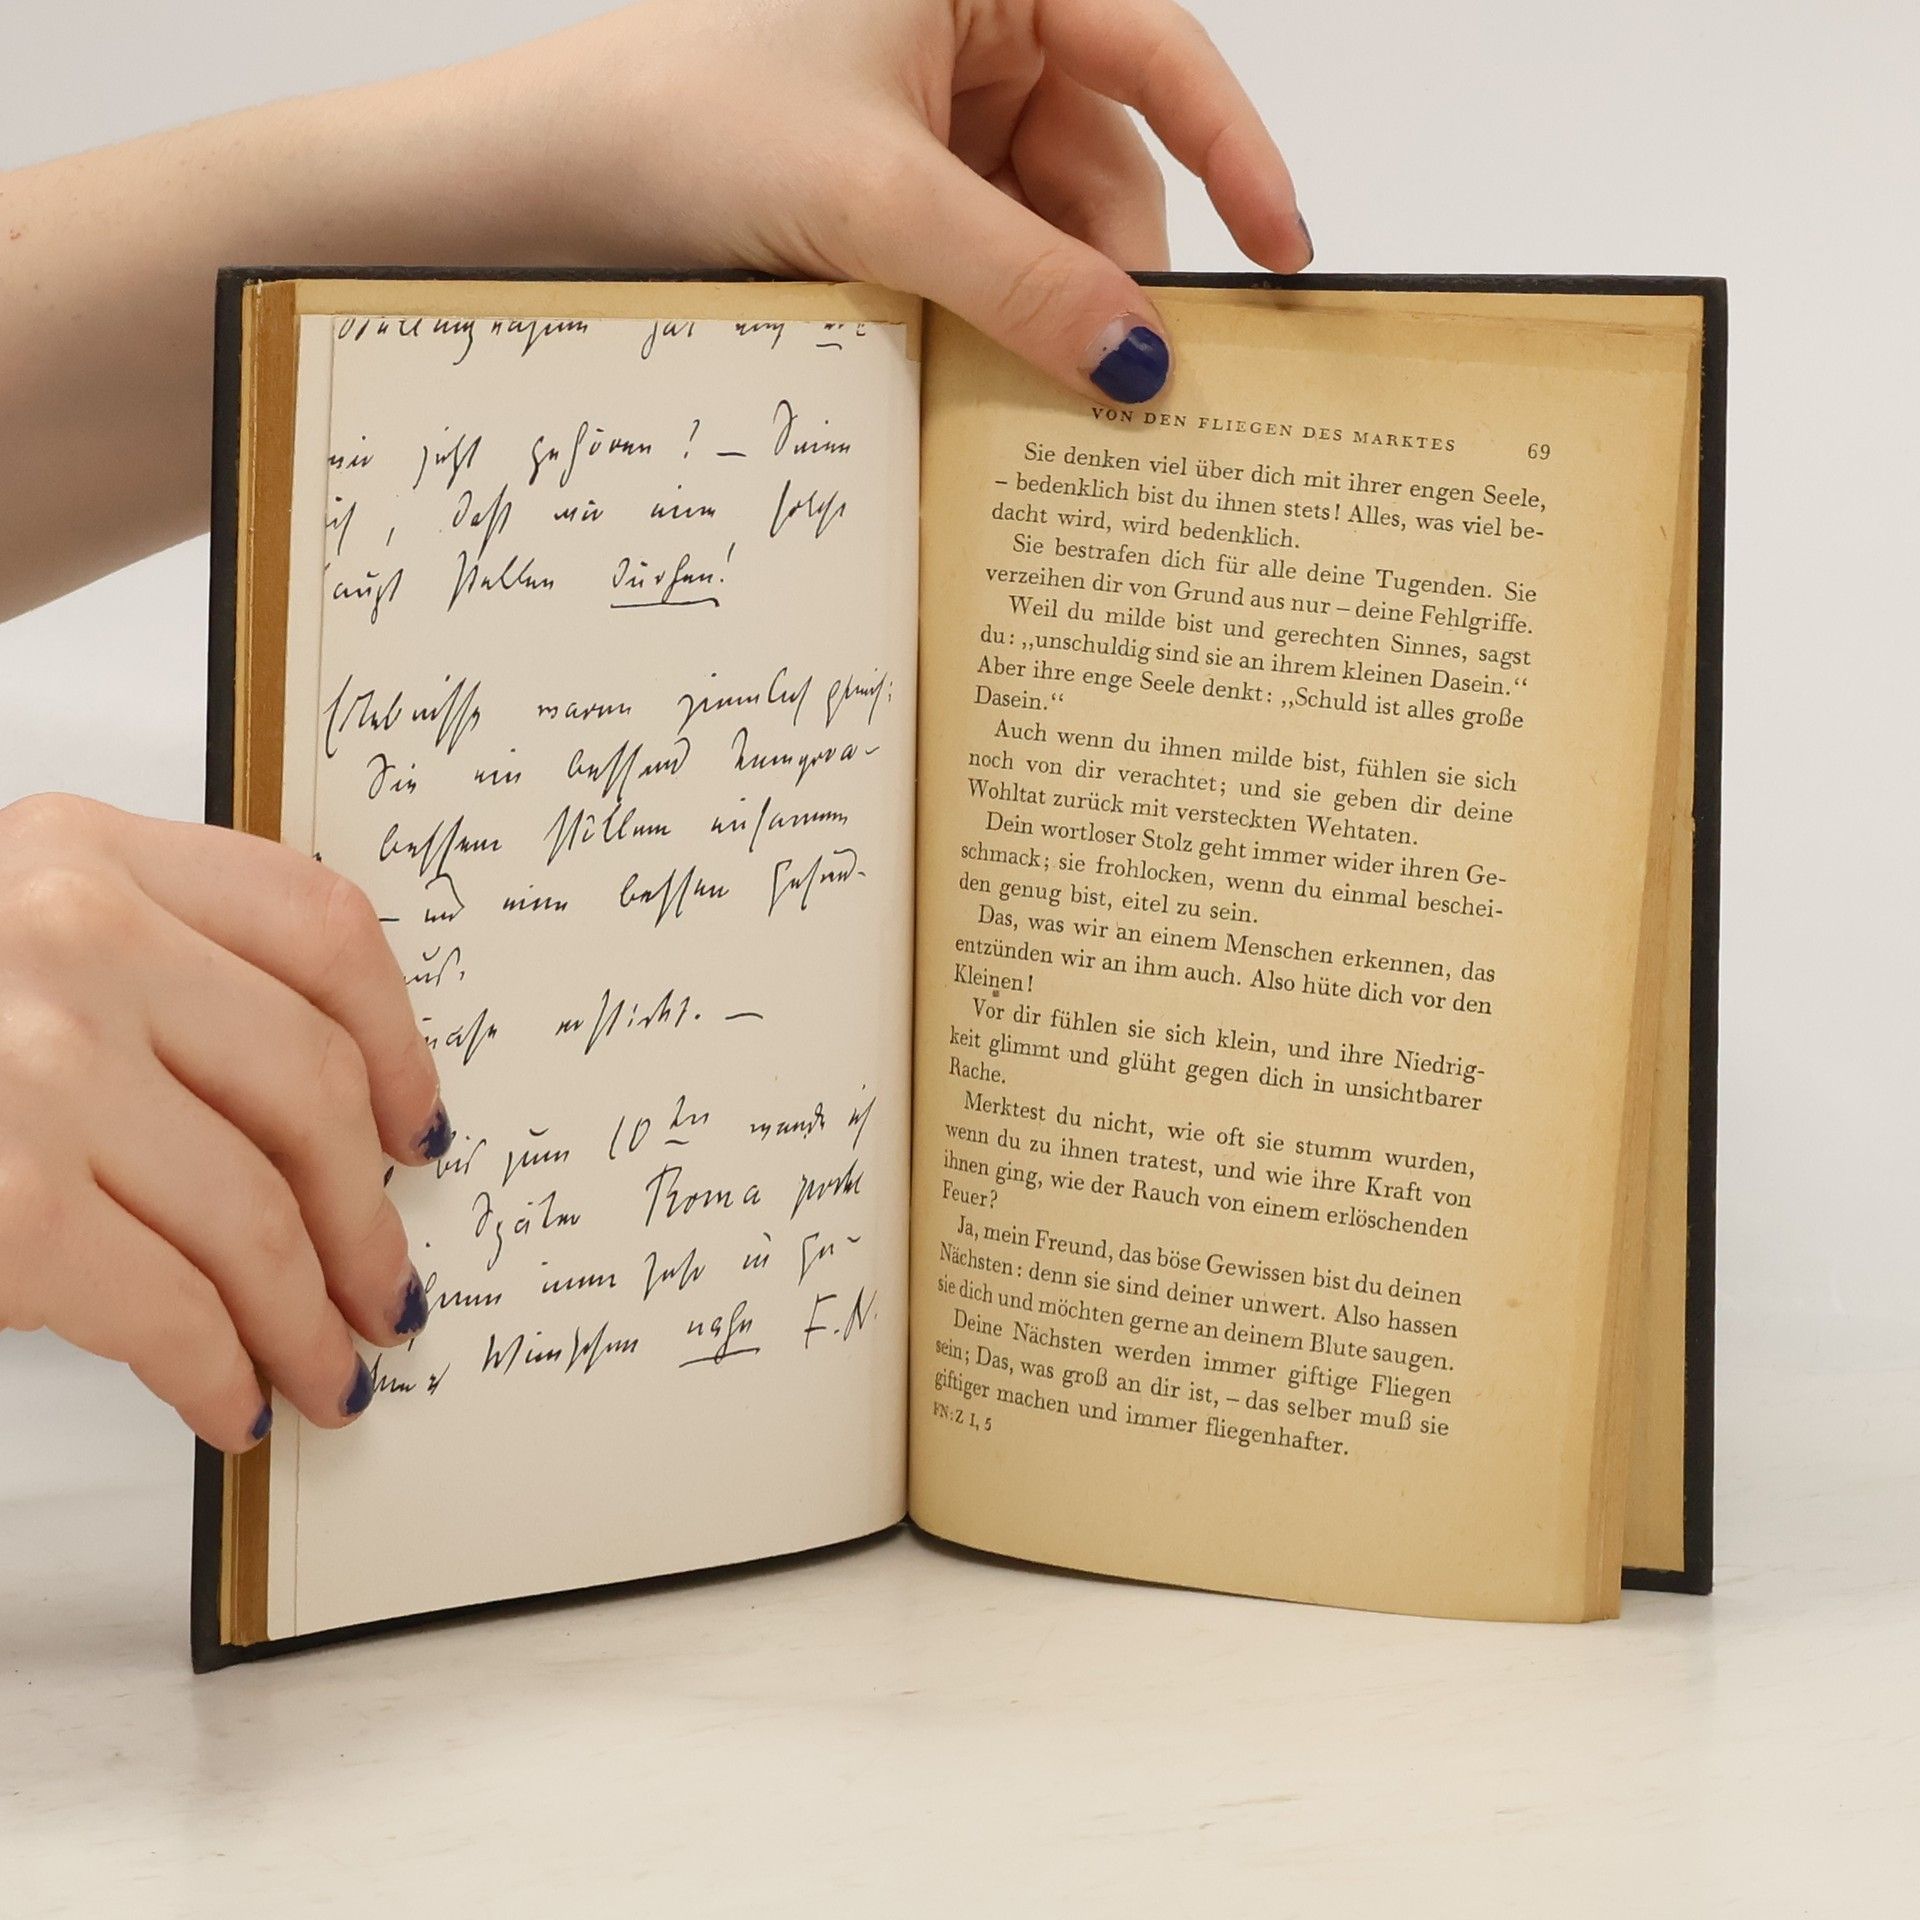 mir jetzt gehören? – Deine
ich, daß wir eine solche
stellen dürfen!
waren ziemlich gleich:
Sie ein bessere
besseren
– und einen bessern Gesund-
aus.
erstickt. –
bis zum 10 ten werde ich
. Später Roma poste
immer sehr in Ge-
Wünschen nahe F. N.
VON DEN FLIEGEN DES MARKTES 69
Sie denken viel über dich mit ihrer engen Seele,
– bedenklich bist du ihnen stets! Alles, was viel be-
dacht wird, wird bedenklich.
Sie bestrafen dich für alle deine Tugenden. Sie
verzeihen dir von Grund aus nur – deine Fehlgriffe.
Weil du milde bist und gerechten Sinnes, sagst
du: „unschuldig sind sie an ihrem kleinen Dasein.“
Aber ihre enge Seele denkt: „Schuld ist alles große
Dasein.“
Auch wenn du ihnen milde bist, fühlen sie sich
noch von dir verachtet; und sie geben dir deine
Wohltat zurück mit versteckten Wehtaten.
Dein wortloser Stolz geht immer wider ihren Ge-
schmack; sie frohlocken, wenn du einmal beschei-
den genug bist, eitel zu sein.
Das, was wir an einem Menschen erkennen, das
entzünden wir an ihm auch. Also hüte dich vor den
Kleinen!
Vor dir fühlen sie sich klein, und ihre Niedrig-
keit glimmt und glüht gegen dich in unsichtbarer
Rache.
Merktest du nicht, wie oft sie stumm wurden,
wenn du zu ihnen tratest, und wie ihre Kraft von
ihnen ging, wie der Rauch von einem erlöschenden
Feuer?
Ja, mein Freund, das böse Gewissen bist du deinen
Nächsten: denn sie sind deiner unwert. Also hassen
sie dich und möchten gerne an deinem Blute saugen.
Deine Nächsten werden immer giftige Fliegen
sein; Das, was groß an dir ist, – das selber muß sie
giftiger machen und immer fliegenhafter.
FN: Z I, 5